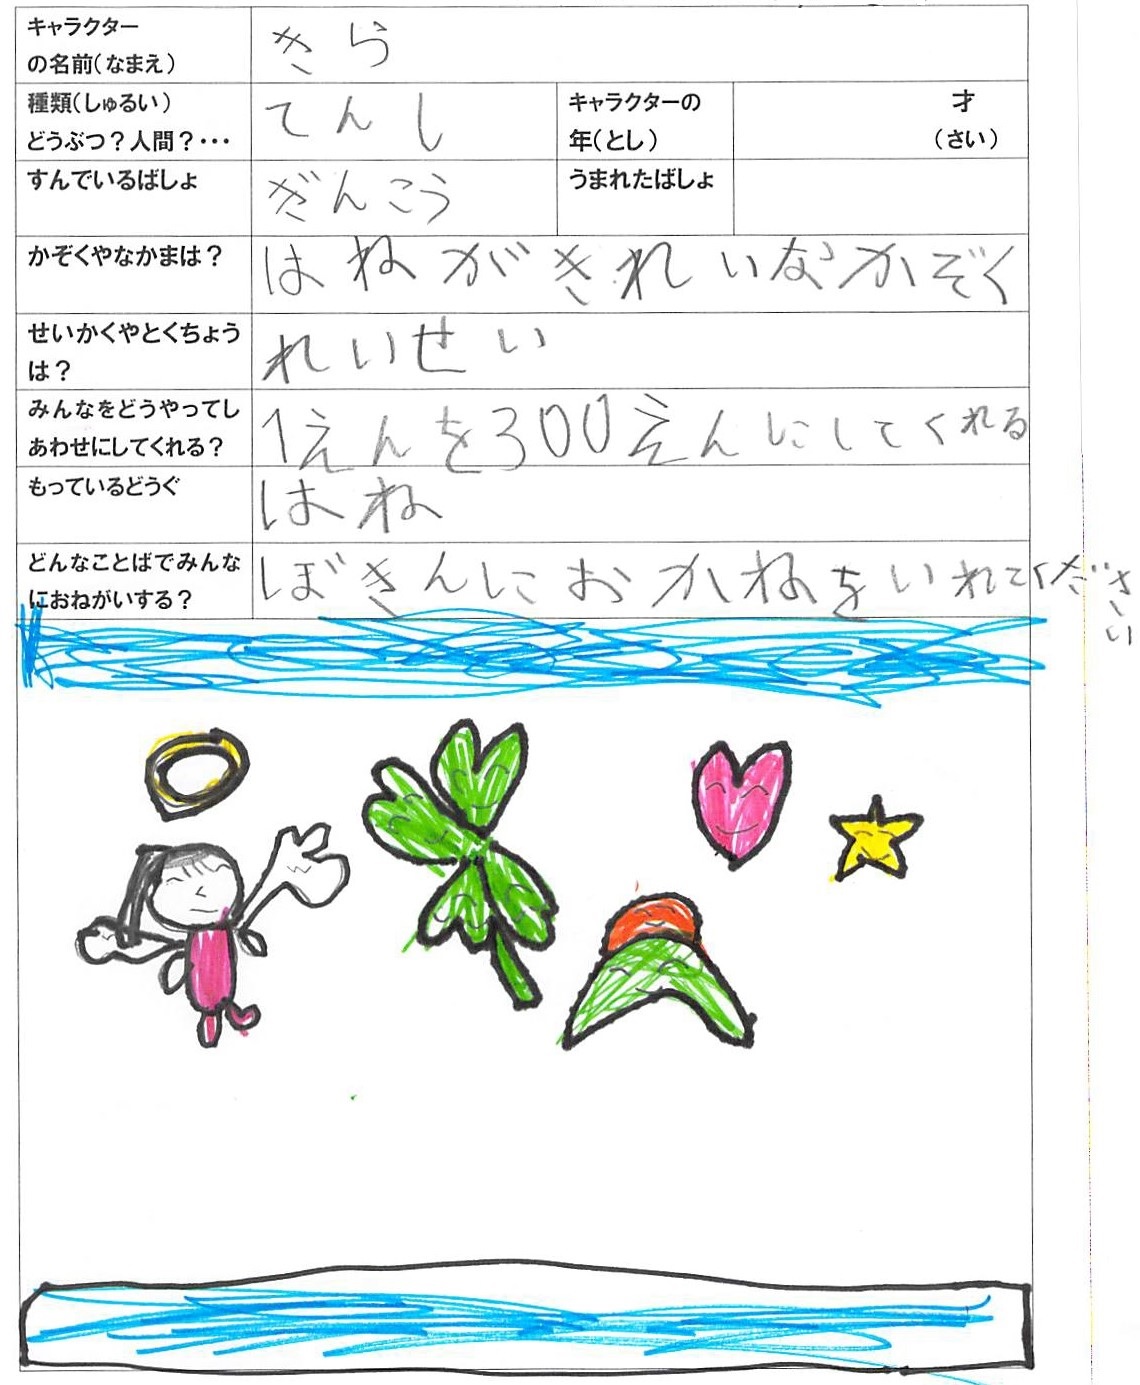 キャラクター
の名前(なまえ)
きら
種類(しゅるい)
どうぶつ?人間?・・・
てんし
キャラクターの
年(とし)
才
(さい)
すんでいるばしょ
ぎんこう
うまれたばしょ
かぞくやなかまは?
はねがきれいなかぞく
せいかくやとくちょう
は?
れいせい
みんなをどうやってし
あわせにしてくれる?
1えんを300えんにしてくれる
もっているどうぐ
はね
どんなことばでみんな
におねがいする?
ぼきんにおかねをいれてください